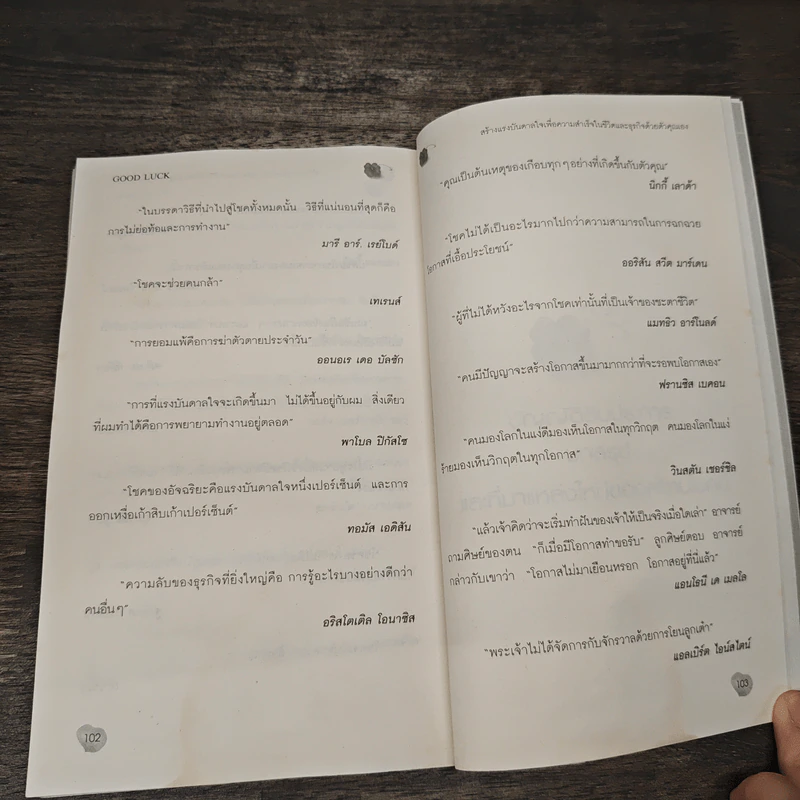 GOOD LUCK
“ในบรรดาวิธีที่นำไปสู่โชคทั้งหมดนั้น วิธีที่แน่นอนที่สุดก็คือ
ภารไม่ย่อท้อและการทำงาน”
มารี อาร์. เรย์ไบด์
“โชคจะช่วยคนกล้า”
เทเรนส์
“การยอมแพ้คือการฆ่าตัวตายประจำวัน”
ออนอเร เดอ บัลซัก
“การที่แรงบันดาลใจจะเกิดขึ้นมา ไม่ได้ขึ้นอยู่กับผม สิ่งเดียว
ที่ผมทำได้คือการพยายามทำงานอยู่ตลอด”
พาโบล ปิกัสโซ
“โชคของอัจฉริยะคือแรงบันดาลใจหนึ่งเปอร์เซ็นต์ และการ
ออกเหงื่อเก้าสิบเก้าเปอร์เซ็นต์”
ทอมัส เอดิสัน
“ความลับของธุรกิจที่ยิ่งใหญ่คือ การรู้อะไรบางอย่างดีกว่า
คนอื่นๆ”
อริสโตเติล โอนาซิส
102
สร้างแรงบันดาลใจเพื่อความสำเร็จในชีวิตและธุรกิจด้วยตัวคุณเอง
“คุณเป็นต้นเหตุของเกือบทุกๆ อย่างที่เกิดขึ้นกับตัวคุณ”
นิกกี้ เลาด้า
“โชคไม่ได้เป็นอะไรมากไปกว่าความสามารถในการฉกฉวย
โอกาสที่เอื้อประโยชน์”
ออริสัน สวีต มาร์เดน
“ผู้ที่ไม่ได้หวังอะไรจากโชคเท่านั้นที่เป็นเจ้าของชะตาชีวิต”
แมทธิว อาร์โนลด์
“คนมีปัญญาจะสร้างโอกาสขึ้นมามากกว่าที่จะรอพบโอกาสเอง”
ฟรานซิส เบคอน
“คนมองโลกในแง่ดีมองเห็นโอกาสในทุกวิกฤต คนมองโลกในแง่
ร้ายมองเห็นวิกฤตในทุกโอกาส”
วินสตัน เชอร์ชิล
“แล้วเจ้าคิดว่าจะเริ่มทำฝันของเจ้าให้เป็นจริงเมื่อใดเล่า” อาจารย์
ถามศิษย์ของตน “ก็เมื่อมีโอกาสทำขอรับ” ลูกศิษย์ตอบ อาจารย์
กล่าวกับเขาว่า “โอกาสไม่มาเยือนหรอก โอกาสอยู่ที่นี่แล้ว”
แอนโธนี เด เมลโล
“พระเจ้าไม่ได้จัดการกับจักรวาลด้วยการโยนลูกเต๋า”
แอลเบิร์ต ไอน์สไตน์
103